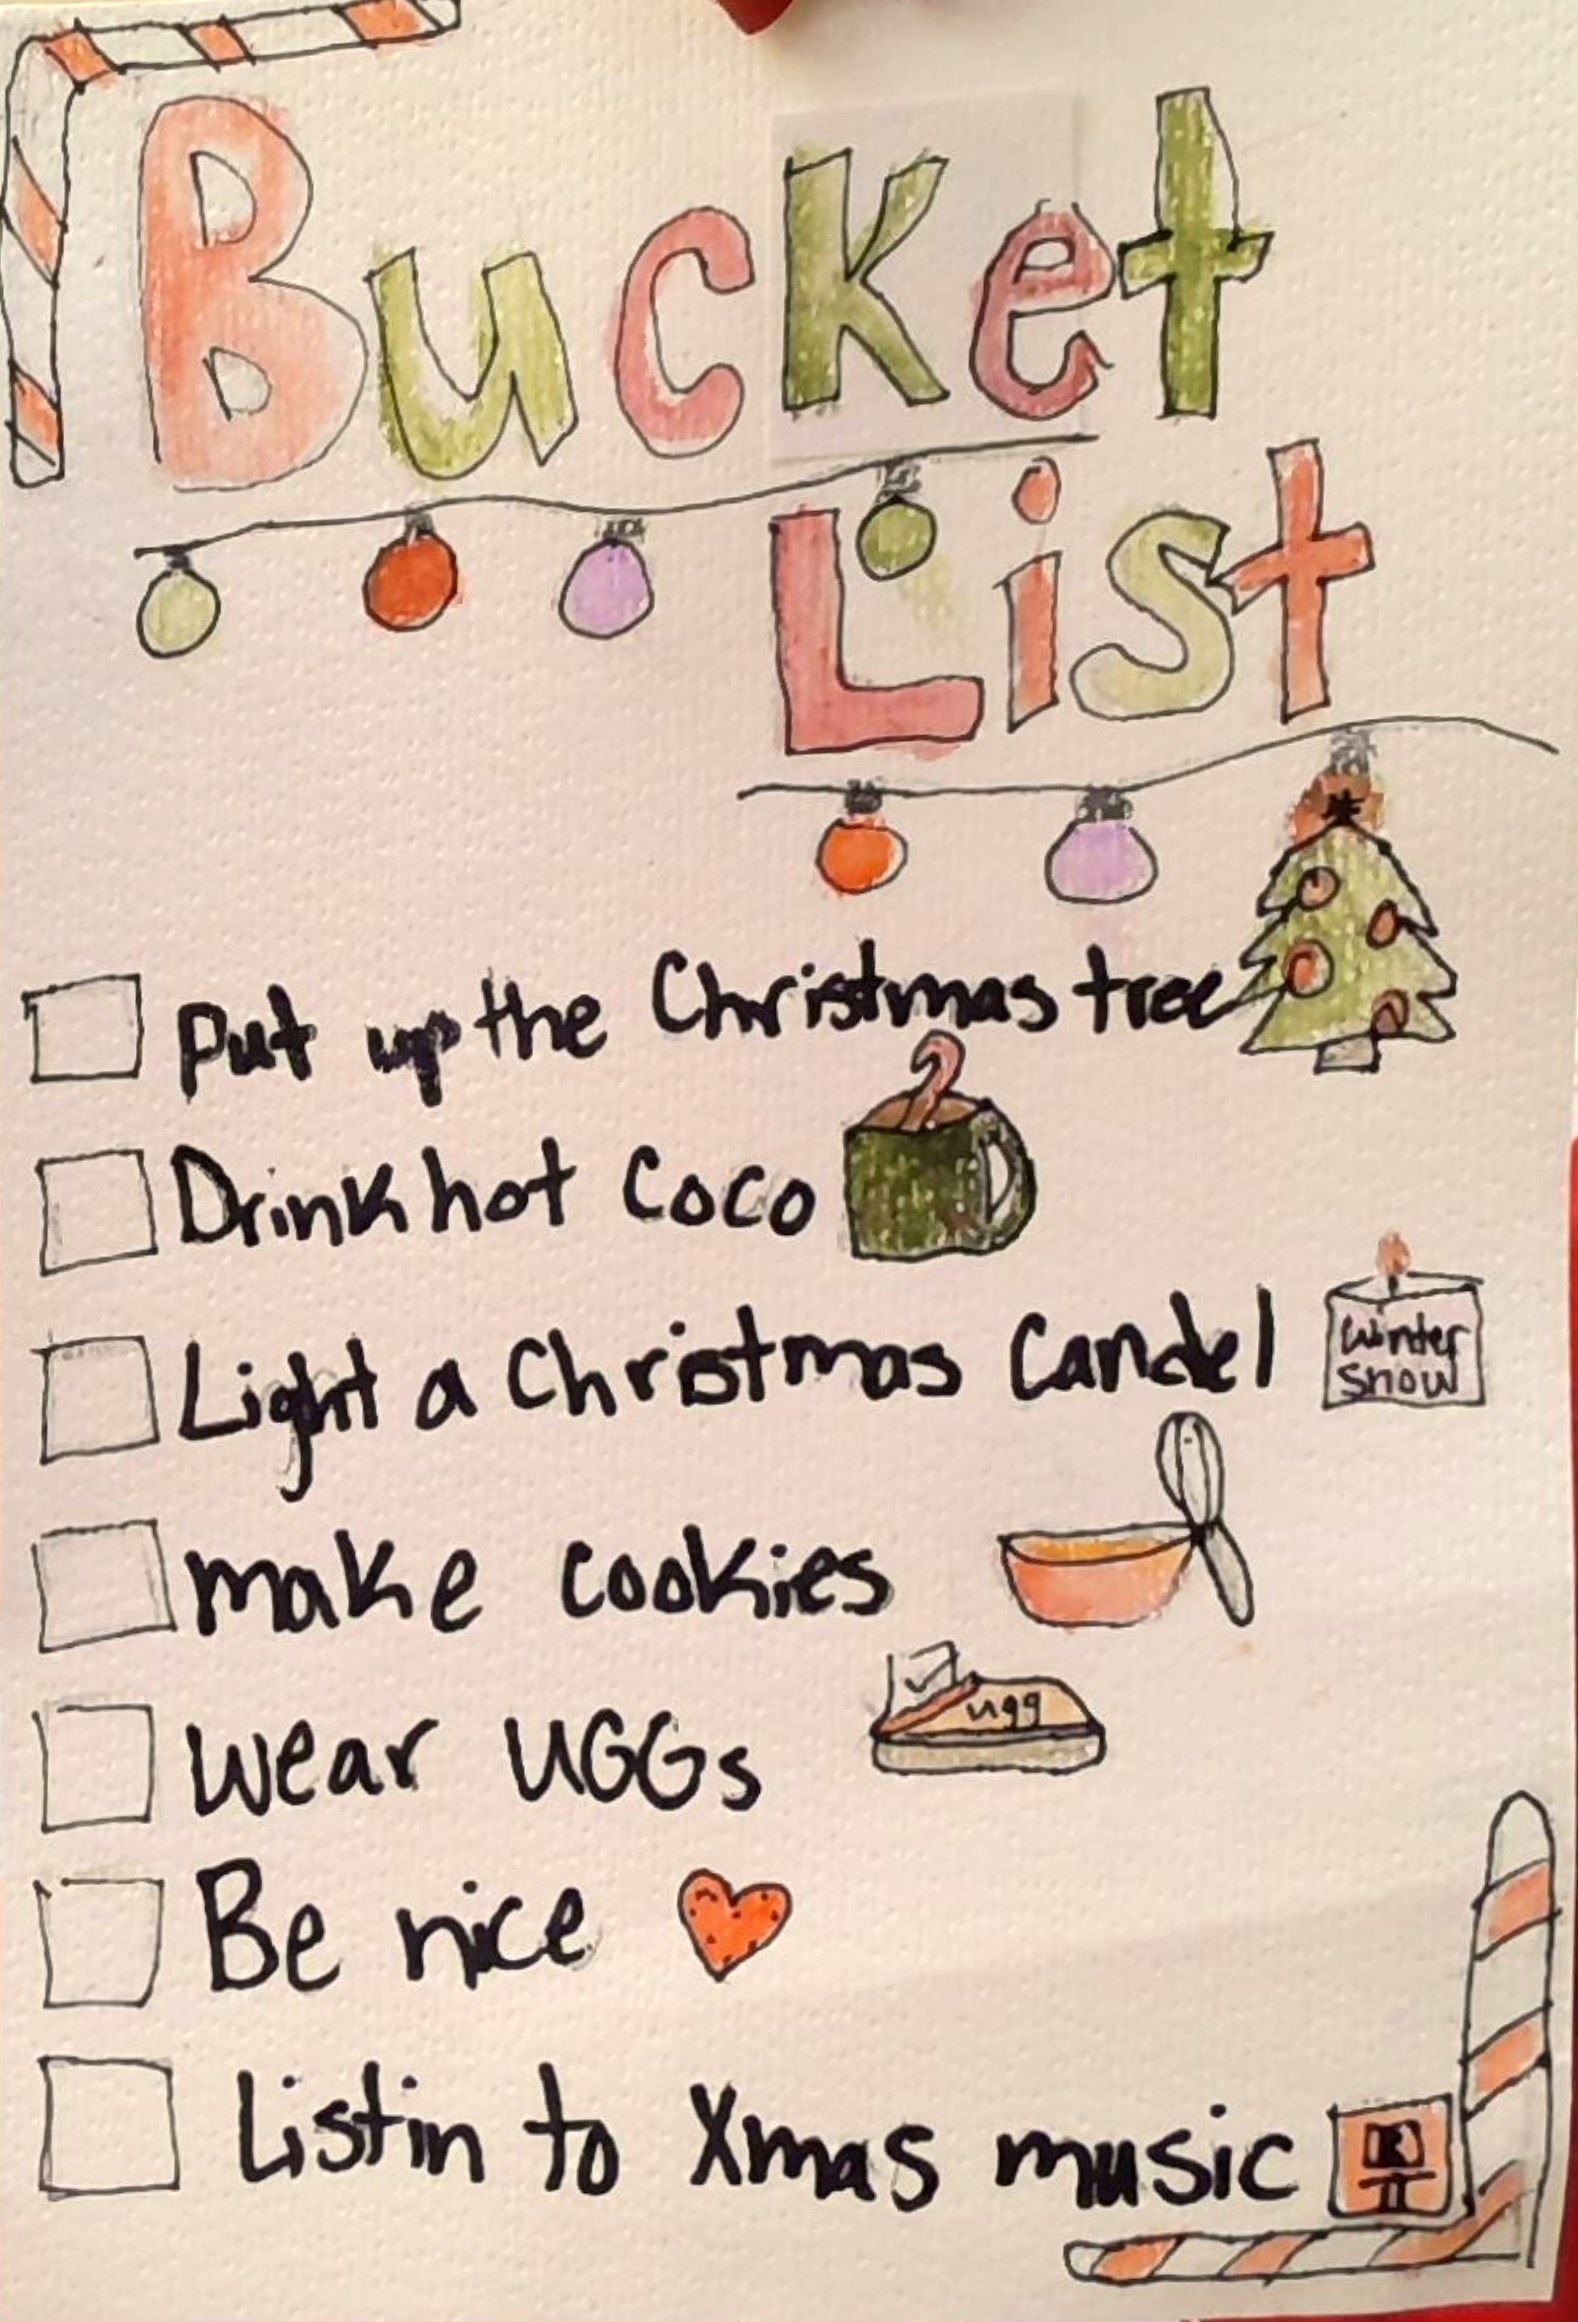 Bucket
List
Put up the Christmas tree
Drink hot Coco
Light a Christmas Candel
Winter
Snow
make cookies
Wear UGGs
ugg
Be nice
Listin to Xmas music